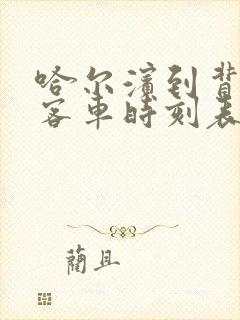 哈尔滨到背
客车时刻表
蔺且